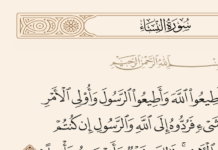 سُورَةُ النِّسَاءِ
بِسْمِ اللَّهِ الرَّحْمَٰنِ الرَّحِيمِ
طِيعُوا۟ ٱللَّهَ وَأَطِيعُوا۟ ٱلرَّسُولَ وَأُو۟لِى ٱلْأَمْرِ
شَىْءٍ فَرُدُّوهُ إِلَى ٱللَّهِ وَٱلرَّسُولِ إِن كُنتُمْ